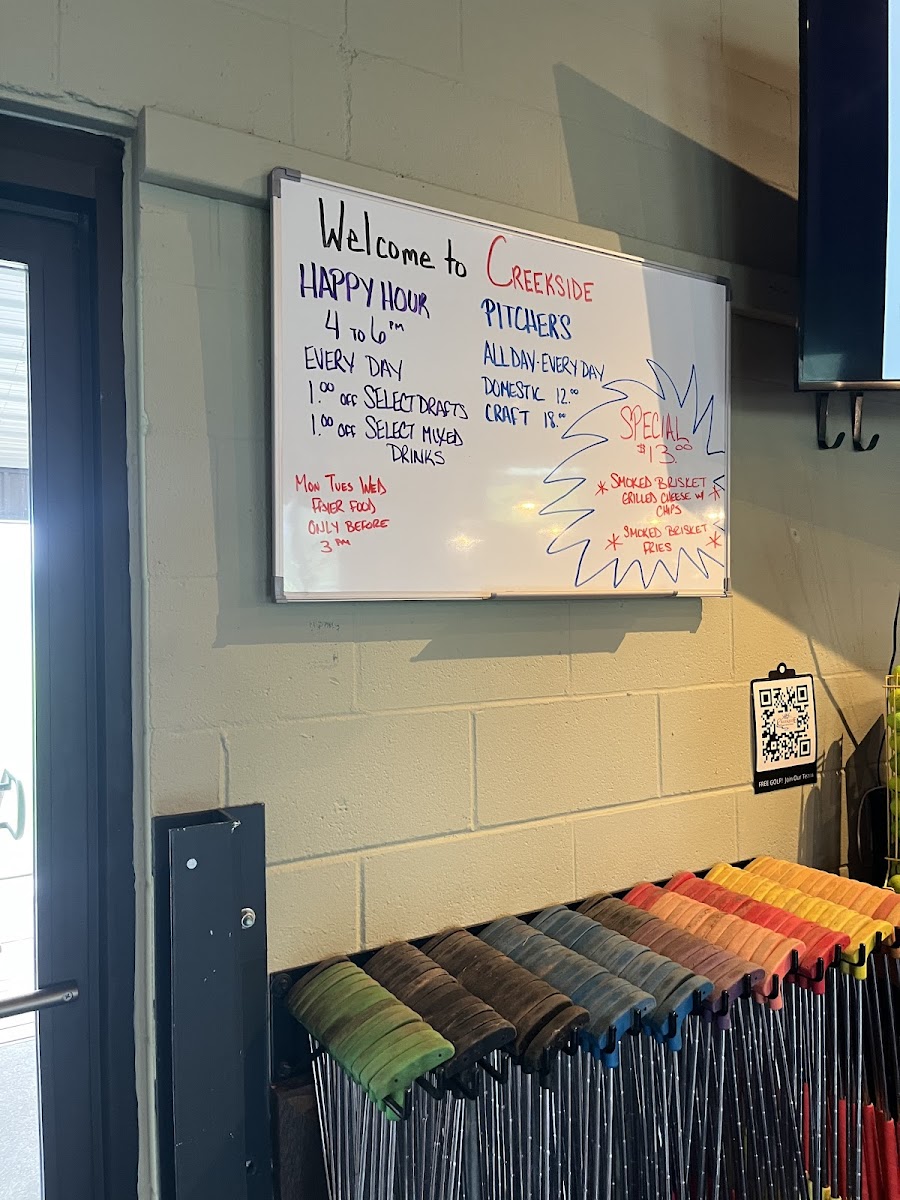 Welcome to CREEKSIDE
HAPPY HOUR
4 TO 6 PM
EVERY DAY
1.00 OFF SELECT DRAFTS
1.00 OFF SELECT MIXED
DRINKS
MON TUES WED
FRYER FOOD
ONLY BEFORE
3 PM
PITCHERS
ALL DAY - EVERY DAY
DOMESTIC 12.00
CRAFT 18.00
SPECIAL
$13.00
* SMOKED BRISKET
GRILLED CHEESE W/ *
CHIPS
* SMOKED BRISKET *
FRIES
FREE GOLF! Join Our Team